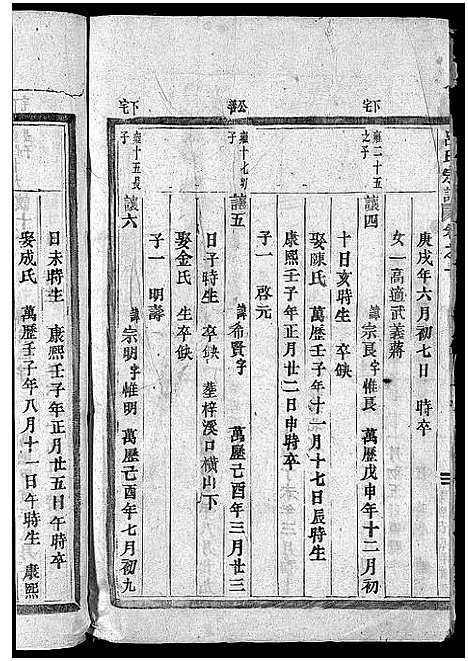 庚戌年六月初七日 時卒
女一高適武義蔣
下宅
雍二十五之子
讓四 諱宗良字惟長 萬歷戊申年十二月初
十日亥時生 卒缺
娶陳氏 萬歷壬子年十一月十七日辰時生
康熙壬子年正月廿二日申時卒
子一 啓元
公善
雍十七幼子
讓五 諱希賢字 萬歷己酉年三月廿三
日子時生 卒缺 塟梓溪口橫山下
娶金氏 生卒缺
子一 明壽
下宅
雍十五長子
讓六 諱宗明字惟明 萬歷己酉年七月初九
日未時生 康熙壬子年正月廿五日午時卒
娶成氏 萬歷壬子年八月十一日午時生 康熙